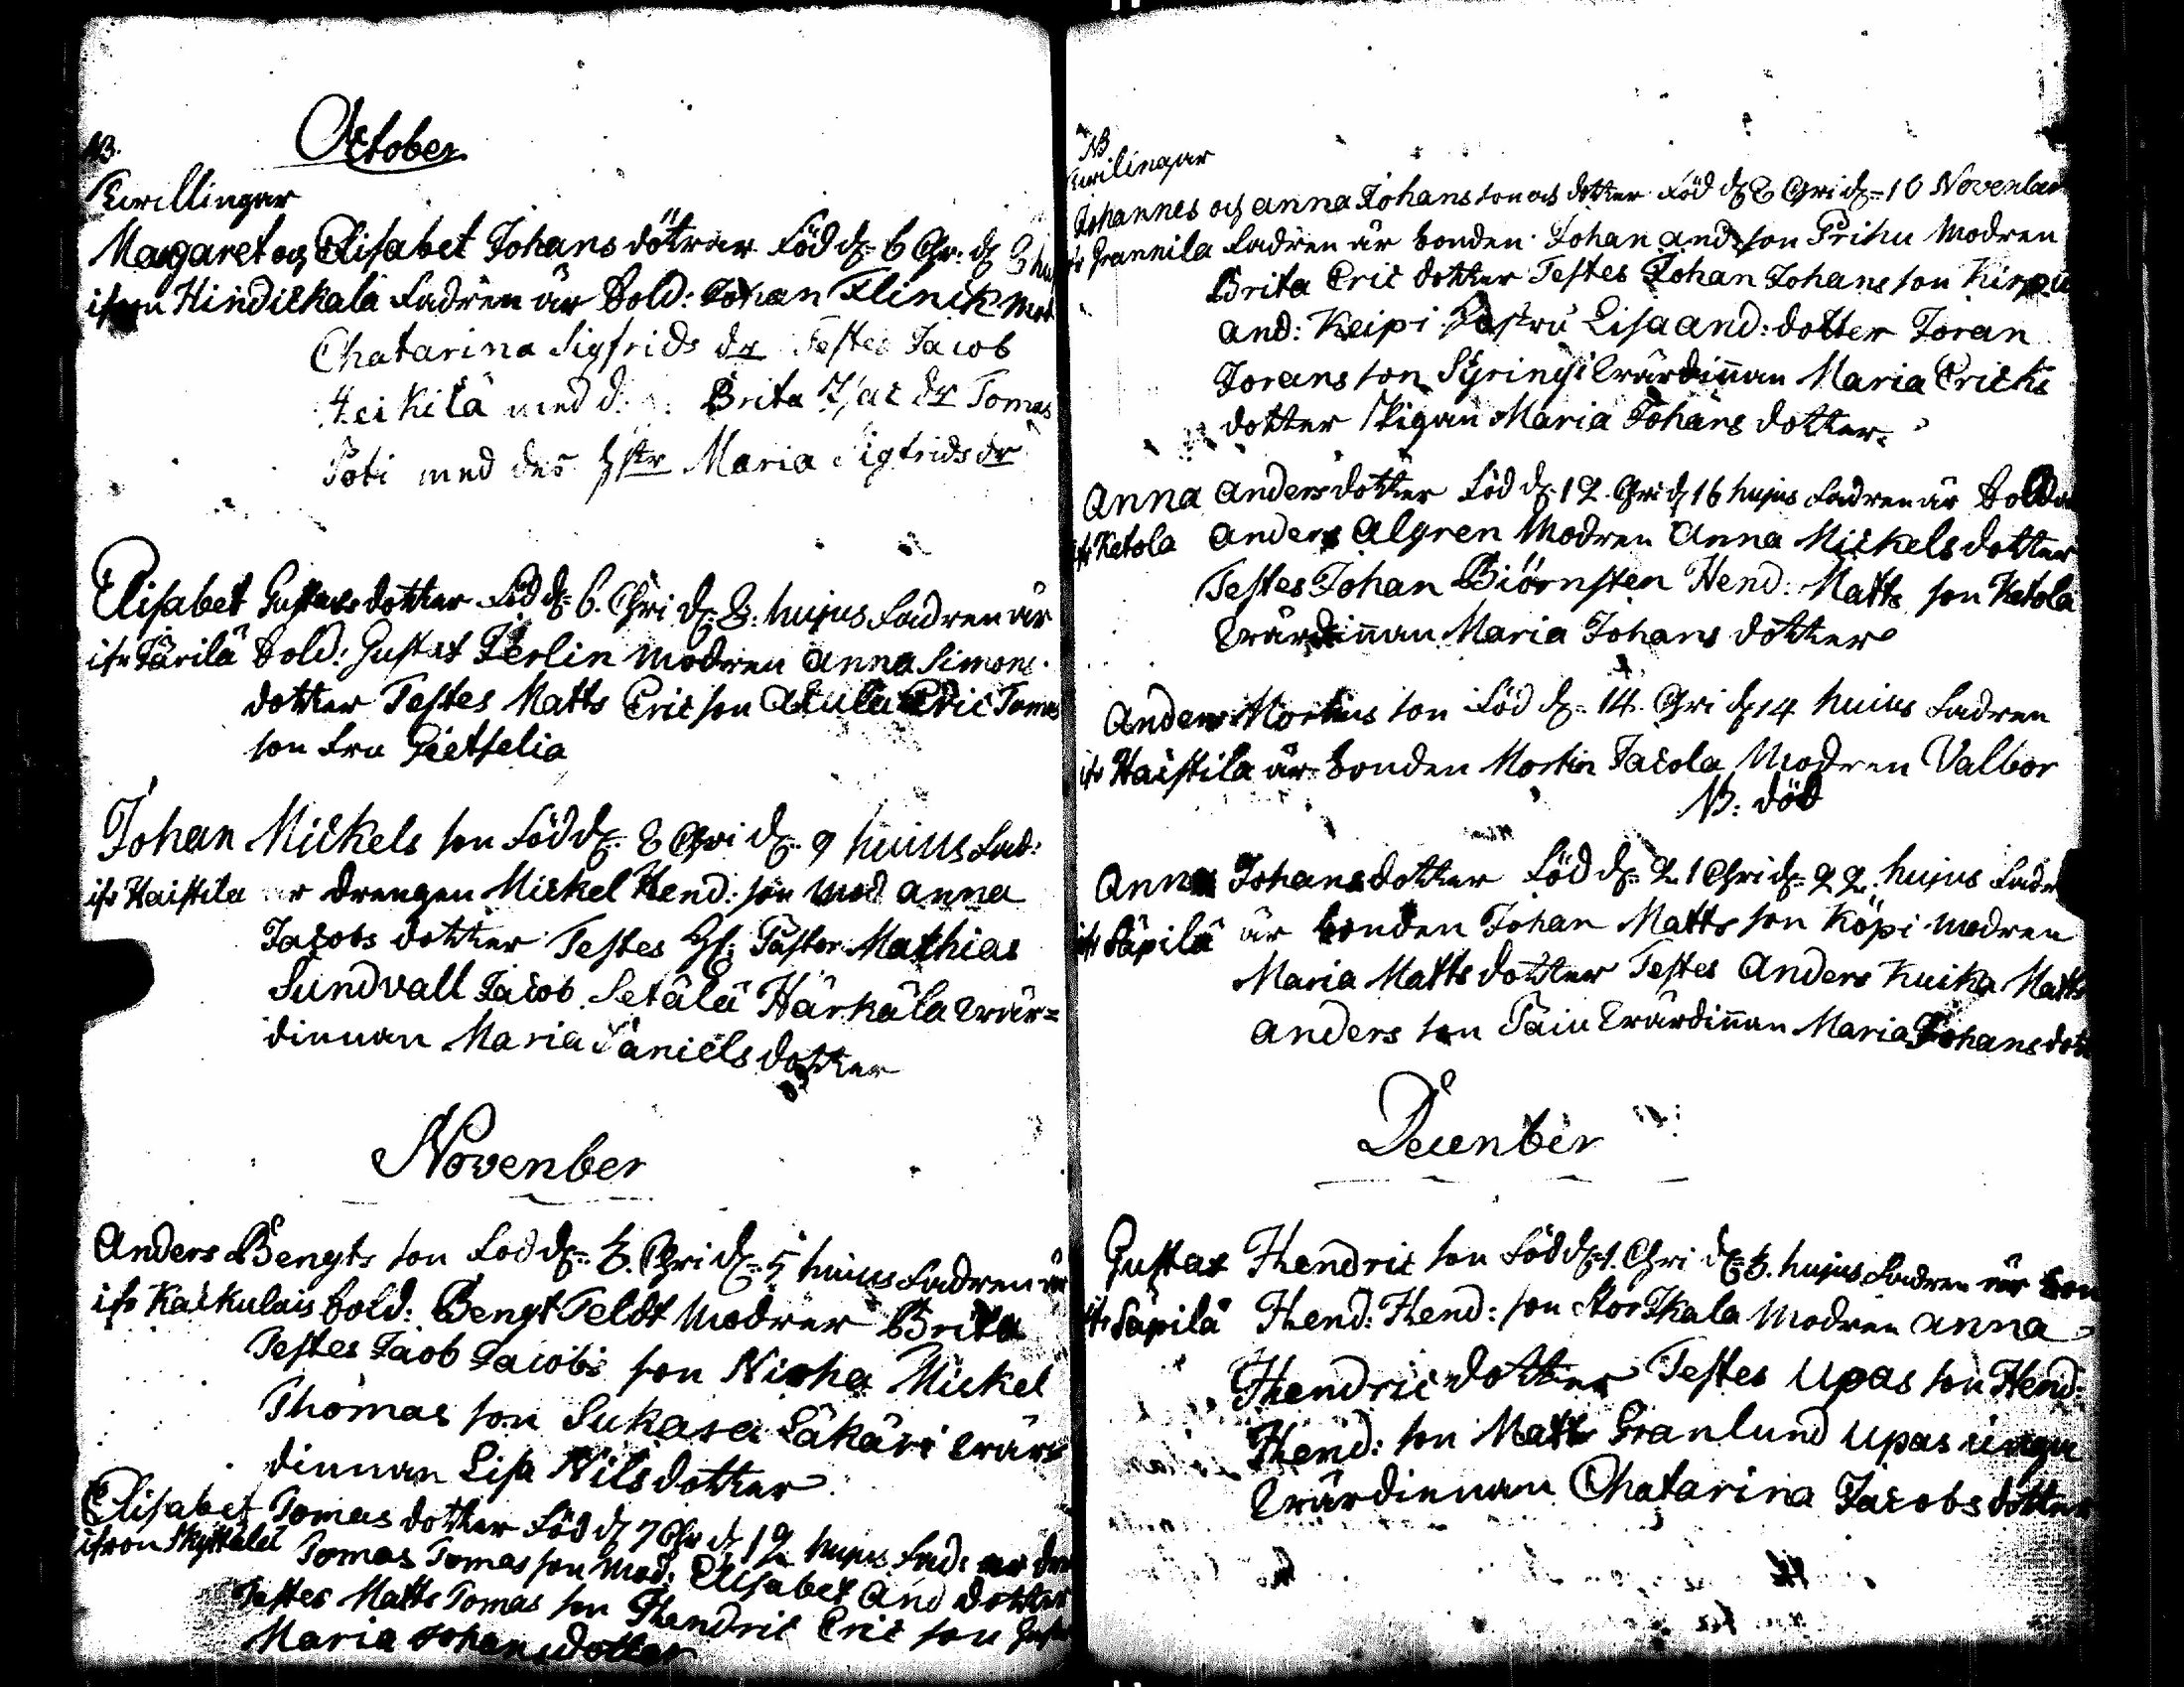 October
NB.
Twillingar
Margaret och Elisabet Johans dötrar Född d: 6 Chr: d: 8
ifrån Hindickala Fadren är Sold: Johan Flinck Mod
Chatarina Sigfrids dr Testes Jacob
Heikilä med Brita dr Tomas
Poti med des Hstr Maria Sigfridsdr
Elisabet Gustavs dotter Föd d: 6. Chri d: 8: hujus Fadren är
ifr Färilä Sold: Gustaf Ferlin Modren Anna Simons
dotter Testes Matts Eric son Eric Tomas
son Fru
Johan Mickels son Född d: 8 Chri d: 9 huius Fad:
ifr Haistila är drengen Mickel Hend: son Mod Anna
Jacobs dotter Testes H: Pastor Mathias
Sundvall Jacob Setälä Härkälä Wär=
dinnan Maria Daniels dotter
November
Anders Bengts son Föd d: 3. Chri d: 5 huius Fadren är
ifr Kaikulais Sold: Bengt Feldt Modrer Brita
Testes Jaob Jacobs son Nirha Mickel
Thomas son Sukasa Säkäri Wär
dinnan Lisa Nils dotter
Elisabet Tomas dotter Föd d: 7 Chr d: 12 hujus Fad: är
ifrån Skyttälel Tomas Tomas son Mod: Elisabet And dotter
Testes Matts Tomas son Hendric Eric son
Maria Johans dotter
NB
Twilingar
Johannes och Anna Johans son och dotter Föd d: 8 Chri d: 10 November
ifr Grannila Fadren är bonden Johan Ands son Prihu Modren
Brita Eric dotter Testes Johan Johans son
And: Keipi Hustru Lisa And: dotter Joran
Jorans son Värdinnan Maria Erichs
dotter Pigan Maria Johans dotter
Anna Anders dotter Föd d: 12. Chri d: 16 hujus Fadren är Solda
ifr Ketola Anders Algren Modren Anna Mickels dotter
Testes Johan Biörnsten Hend: Matts son Ketola
Wärdinnan Maria Johans dotter
Anders Mortens son Föd d: 14. Chri d: 14 huius Fadren
ifr Haistila är bonden Mortin Jacola Modren Valbor
NB: död
Anna Johans dotter Föd d: 21 Chri d: 22. hujus Fadr
ifr Säpilä är bonden Johan Matts son Köpi Modren
Maria Matts dotter Testes Anders Kuika Matts
Anders son Pain Wärdinnan Maria Johans dot
Decenber
Gustaf Hendric son Föd d: 1. Chri d: 3. hujus Fadren är bon
ifr Säpilä Hend: Hend: son Stor Ikala Modren Anna
Hendric dotter Testes Upas son Hend:
Hend: son Matts Granlund Upas
Wärdinnan Chatarina Jacobs dotter